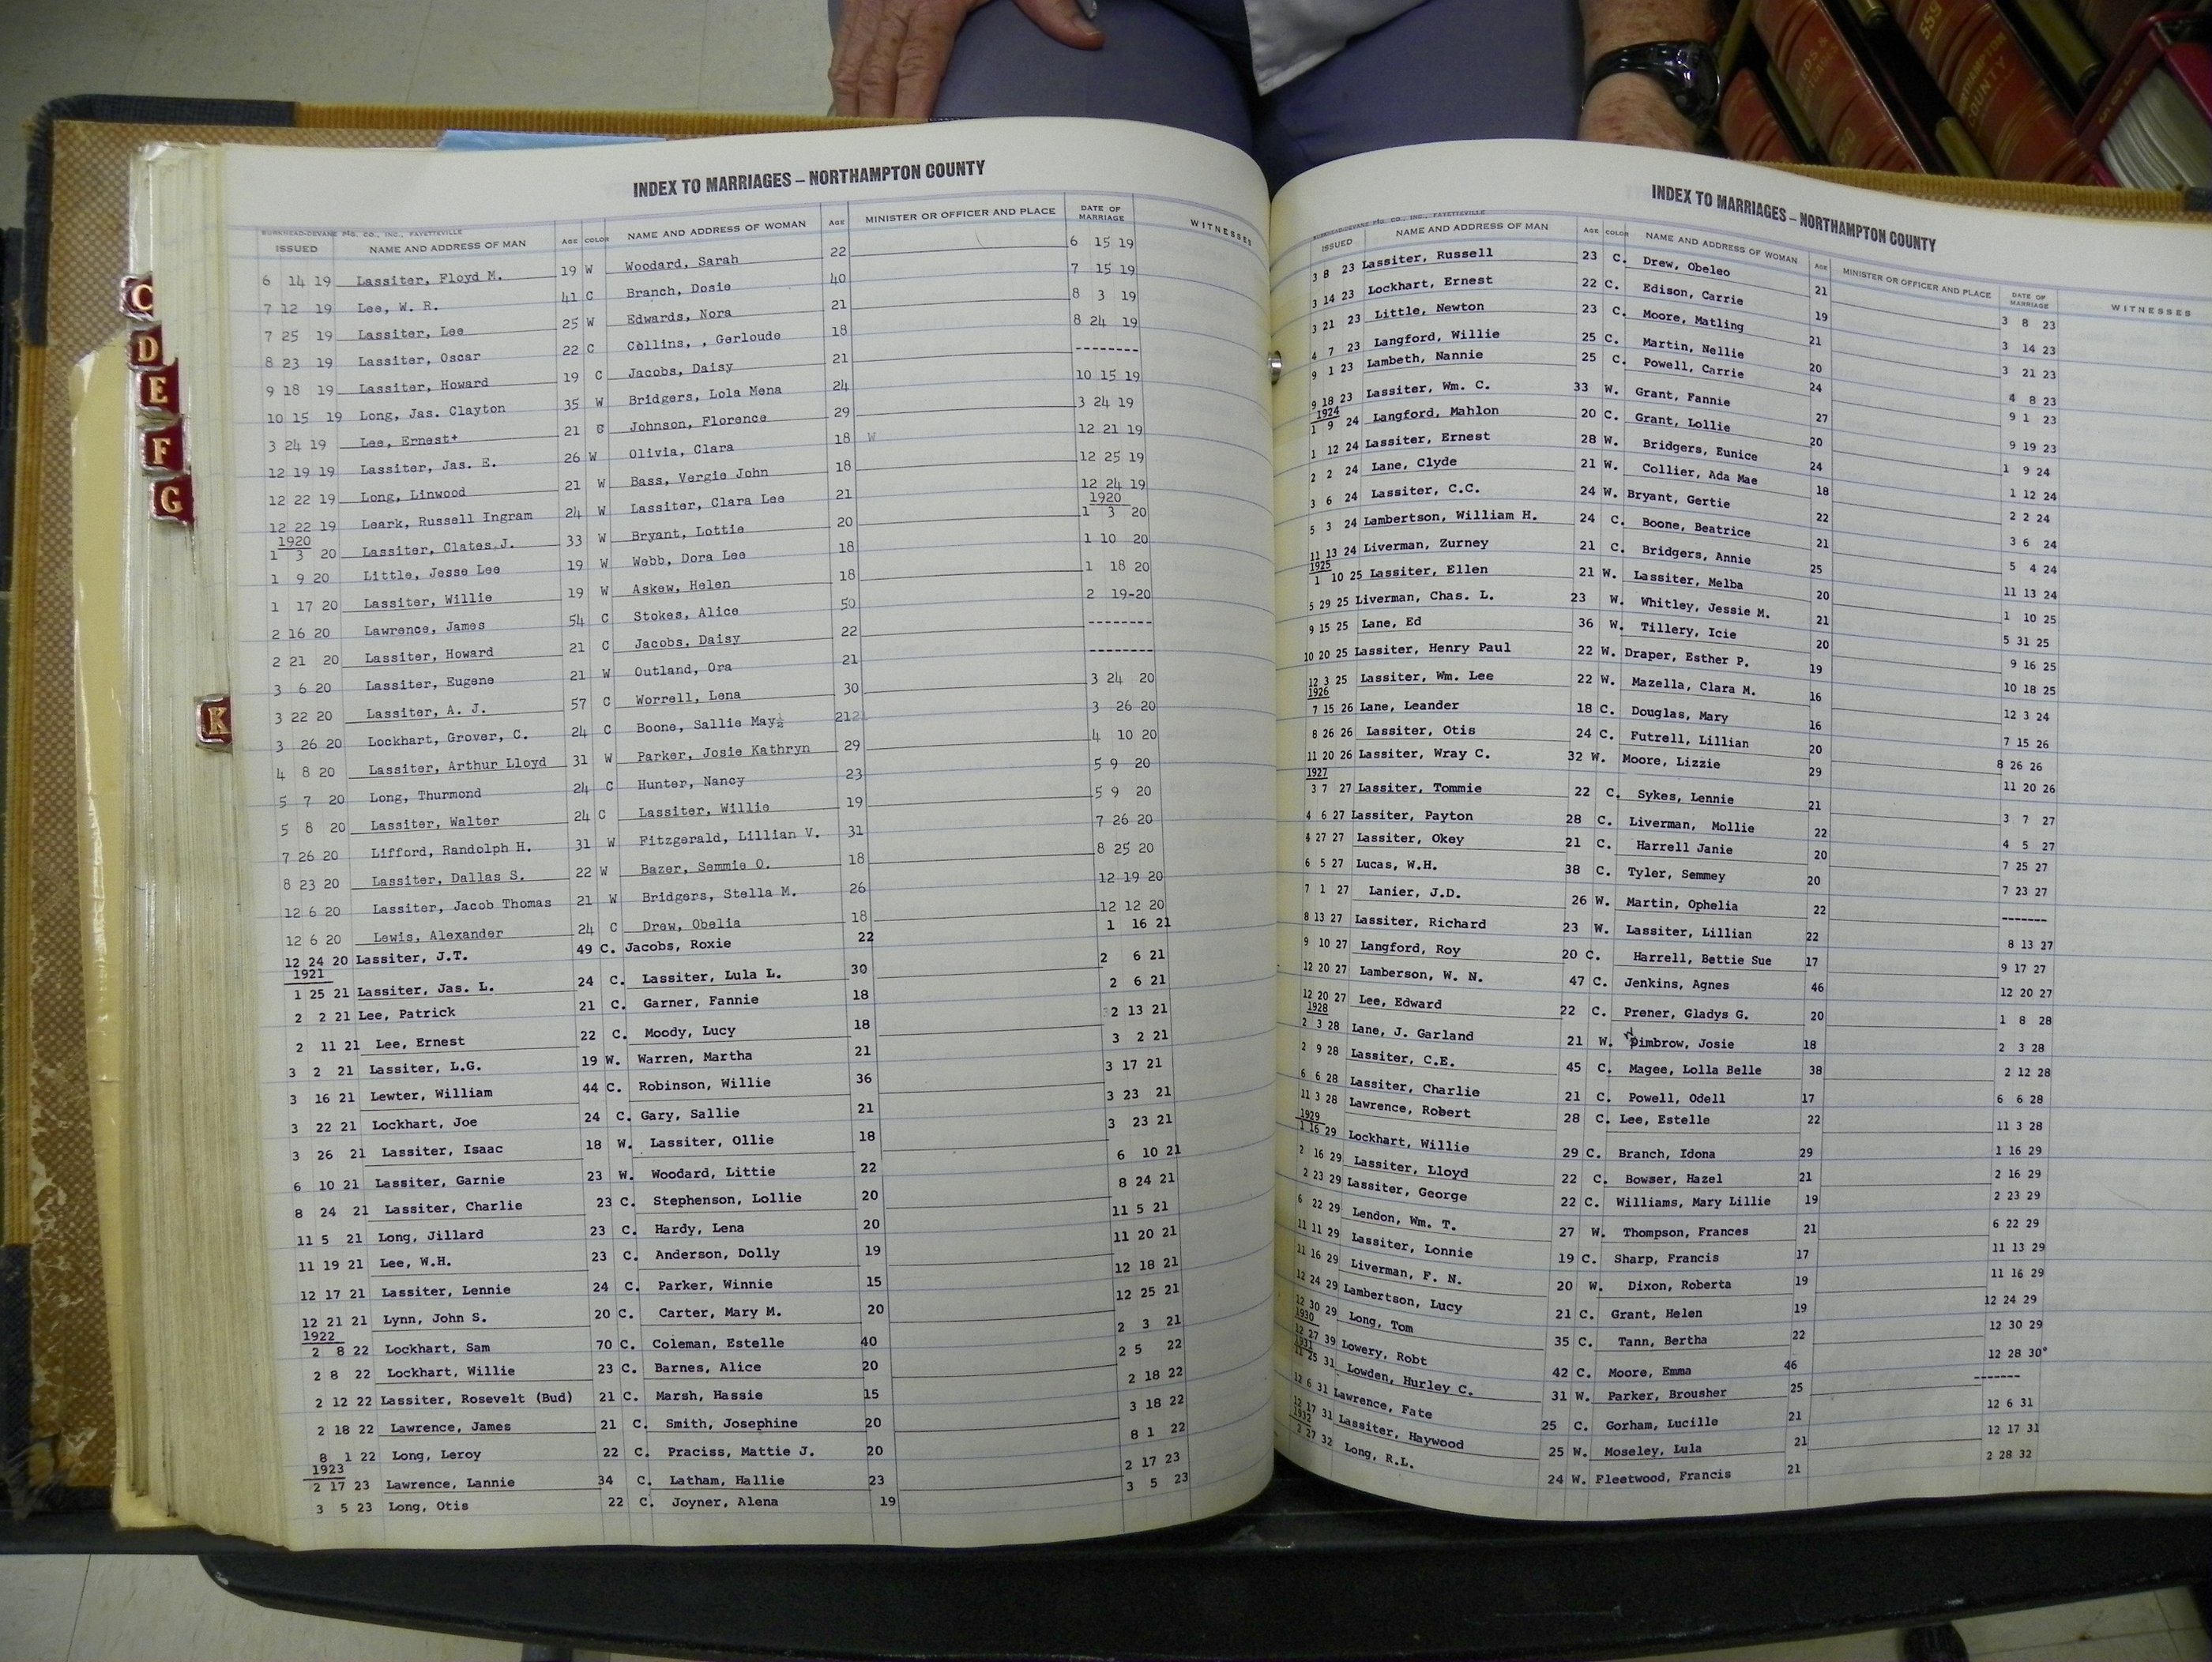 C
D
E
F
G
K
INDEX TO MARRIAGES – NORTHAMPTON COUNTY
BURKHEAD-DEVANE PTG. CO., INC., FAYETTEVILLE
ISSUED NAME AND ADDRESS OF MAN AGE COLOR NAME AND ADDRESS OF WOMAN AGE MINISTER OR OFFICER AND PLACE DATE OF MARRIAGE WITNESSES
6 14 19 Lassiter, Floyd M. 19 W Woodard, Sarah 22 6 15 19
7 12 19 Lee, W. R. 41 C Branch, Dosie 40 7 15 19
7 25 19 Lassiter, Lee 25 W Edwards, Nora 21 8 3 19
8 23 19 Lassiter, Oscar 22 C Collins, , Gerloude 18 8 24 19
9 18 19 Lassiter, Howard 19 C Jacobs, Daisy 21 --------
10 15 19 Long, Jas. Clayton 35 W Bridgers, Lola Mena 24 10 15 19
3 24 19 Lee, Ernest+ 21 Johnson, Florence 29 3 24 19
12 19 19 Lassiter, Jas. E. 26 W Olivia, Clara 18 W 12 21 19
12 22 19 Long, Linwood 21 W Bass, Vergie John 18 12 25 19
12 22 19 Leark, Russell Ingram 24 W Lassiter, Clara Lee 21 12 24 19
1920 1920
1 3 20 Lassiter, Clates J. 33 W Bryant, Lottie 20 1 3 20
1 9 20 Little, Jesse Lee 19 W Webb, Dora Lee 18 1 10 20
1 17 20 Lassiter, Willie 19 W Askew, Helen 18 1 18 20
2 16 20 Lawrence, James 54 C Stokes, Alice 50 2 19-20
2 21 20 Lassiter, Howard 21 C Jacobs, Daisy 22 --------
3 6 20 Lassiter, Eugene 21 W Outland, Ora 21 --------
3 22 20 Lassiter, A. J. 57 C Worrell, Lena 30 3 24 20
3 26 20 Lockhart, Grover, C. 24 C Boone, Sallie May 21 3 26 20
4 8 20 Lassiter, Arthur Lloyd 31 W Parker, Josie Kathryn 29 4 10 20
5 7 20 Long, Thurmond 24 C Hunter, Nancy 23 5 9 20
5 8 20 Lassiter, Walter 24 C Lassiter, Willie 19 5 9 20
7 26 20 Lifford, Randolph H. 31 W Fitzgerald, Lillian V. 31 7 26 20
8 23 20 Lassiter, Dallas S. 22 W Bazer, Semmie O. 18 8 25 20
12 6 20 Lassiter, Jacob Thomas 21 W Bridgers, Stella M. 26 12 19 20
12 6 20 Lewis, Alexander 24 C Drew, Obelia 18 12 12 20
12 24 20 Lassiter, J.T. 49 C. Jacobs, Roxie 22 1 16 21
1921
1 25 21 Lassiter, Jas. L. 24 C. Lassiter, Lula L. 30 2 6 21
2 2 21 Lee, Patrick 21 C. Garner, Fannie 18 2 6 21
2 11 21 Lee, Ernest 22 C. Moody, Lucy 18 2 13 21
3 2 21 Lassiter, L.G. 19 W. Warren, Martha 21 3 2 21
3 16 21 Lewter, William 44 C. Robinson, Willie 36 3 17 21
3 22 21 Lockhart, Joe 24 C. Gary, Sallie 21 3 23 21
3 26 21 Lassiter, Isaac 18 W. Lassiter, Ollie 18 3 23 21
6 10 21 Lassiter, Garnie 23 W. Woodard, Littie 22 6 10 21
8 24 21 Lassiter, Charlie 23 C. Stephenson, Lollie 20 8 24 21
11 5 21 Long, Jillard 23 C. Hardy, Lena 20 11 5 21
11 19 21 Lee, W.H. 23 C. Anderson, Dolly 19 11 20 21
12 17 21 Lassiter, Lennie 24 C. Parker, Winnie 15 12 18 21
12 21 21 Lynn, John S. 20 C. Carter, Mary M. 20 12 25 21
1922
2 8 22 Lockhart, Sam 70 C. Coleman, Estelle 40 2 3 21
2 8 22 Lockhart, Willie 23 C. Barnes, Alice 20 2 5 22
2 12 22 Lassiter, Rosevelt (Bud) 21 C. Marsh, Hassie 15 2 18 22
2 18 22 Lawrence, James 21 C. Smith, Josephine 20 3 18 22
8 1 22 Long, Leroy 22 C. Praciss, Mattie J. 20 8 1 22
1923
2 17 23 Lawrence, Lannie 34 C. Latham, Hallie 23 2 17 23
3 5 23 Long, Otis 22 C. Joyner, Alena 19 3 5 23
INDEX TO MARRIAGES – NORTHAMPTON COUNTY
BURKHEAD-DEVANE PTG. CO., INC., FAYETTEVILLE
ISSUED NAME AND ADDRESS OF MAN AGE COLOR NAME AND ADDRESS OF WOMAN AGE MINISTER OR OFFICER AND PLACE DATE OF MARRIAGE WITNESSES
3 8 23 Lassiter, Russell 23 C. Drew, Obeleo 21 3 8 23
3 14 23 Lockhart, Ernest 22 C. Edison, Carrie 19 3 14 23
3 21 23 Little, Newton 23 C. Moore, Matling 21 3 21 23
4 7 23 Langford, Willie 25 C. Martin, Nellie 20 4 8 23
9 1 23 Lambeth, Nannie 25 C. Powell, Carrie 24 9 1 23
9 18 23 Lassiter, Wm. C. 33 W. Grant, Fannie 27 9 19 23
1924
1 9 24 Langford, Mahlon 20 C. Grant, Lollie 20 1 9 24
1 12 24 Lassiter, Ernest 28 W. Bridgers, Eunice 24 1 12 24
2 2 24 Lane, Clyde 21 W. Collier, Ada Mae 18 2 2 24
3 6 24 Lassiter, C.C. 24 W. Bryant, Gertie 22 3 6 24
5 3 24 Lambertson, William H. 24 C. Boone, Beatrice 21 5 4 24
11 13 24 Liverman, Zurney 21 C. Bridgers, Annie 25 11 13 24
1925
1 10 25 Lassiter, Ellen 21 W. Lassiter, Melba 20 1 10 25
5 29 25 Liverman, Chas. L. 23 W. Whitley, Jessie M. 21 5 31 25
9 15 25 Lane, Ed 36 W. Tillery, Icie 20 9 16 25
10 20 25 Lassiter, Henry Paul 22 W. Draper, Esther P. 19 10 18 25
12 3 25 Lassiter, Wm. Lee 22 W. Mazella, Clara M. 16 12 3 24
1926
7 15 26 Lane, Leander 18 C. Douglas, Mary 16 7 15 26
8 26 26 Lassiter, Otis 24 C. Futrell, Lillian 20 8 26 26
11 20 26 Lassiter, Wray C. 32 W. Moore, Lizzie 29 11 20 26
1927
3 7 27 Lassiter, Tommie 22 C. Sykes, Lennie 21 3 7 27
4 6 27 Lassiter, Payton 28 C. Liverman, Mollie 22 4 5 27
4 27 27 Lassiter, Okey 21 C. Harrell Janie 20 7 25 27
6 5 27 Lucas, W.H. 38 C. Tyler, Semmey 20 7 23 27
7 1 27 Lanier, J.D. 26 W. Martin, Ophelia 22 -------
8 13 27 Lassiter, Richard 23 W. Lassiter, Lillian 22 8 13 27
9 10 27 Langford, Roy 20 C. Harrell, Bettie Sue 17 9 17 27
12 20 27 Lamberson, W. N. 47 C. Jenkins, Agnes 46 12 20 27
12 20 27 Lee, Edward 22 C. Prener, Gladys G. 20 1 8 28
1928
2 3 28 Lane, J. Garland 21 W. Pimbrow, Josie 18 2 3 28
2 9 28 Lassiter, C.E. 45 C. Magee, Lolla Belle 38 2 12 28
6 6 28 Lassiter, Charlie 21 C. Powell, Odell 17 6 6 28
11 3 28 Lawrence, Robert 28 C. Lee, Estelle 22 11 3 28
1929
1 16 29 Lockhart, Willie 29 C. Branch, Idona 29 1 16 29
2 16 29 Lassiter, Lloyd 22 C. Bowser, Hazel 21 2 16 29
2 23 29 Lassiter, George 22 C. Williams, Mary Lillie 19 2 23 29
6 22 29 Lendon, Wm. T. 27 W. Thompson, Frances 21 6 22 29
11 11 29 Lassiter, Lonnie 19 C. Sharp, Francis 17 11 13 29
11 16 29 Liverman, F. N. 20 W. Dixon, Roberta 19 11 16 29
12 24 29 Lambertson, Lucy 21 C. Grant, Helen 19 12 24 29
12 30 29 Long, Tom 35 C. Tann, Bertha 22 12 30 29
1930
12 27 39 Lowery, Robt 42 C. Moore, Emma 46 12 28 30
1931
11 25 31 Lowden, Hurley C. 31 W. Parker, Brousher 25 -------
12 6 31 Lawrence, Fate 25 C. Gorham, Lucille 21 12 6 31
12 17 31 Lassiter, Haywood 25 W. Moseley, Lula 21 12 17 31
1932
2 27 32 Long, R.L. 24 W. Fleetwood, Francis 21 2 28 32
559
COUNTY